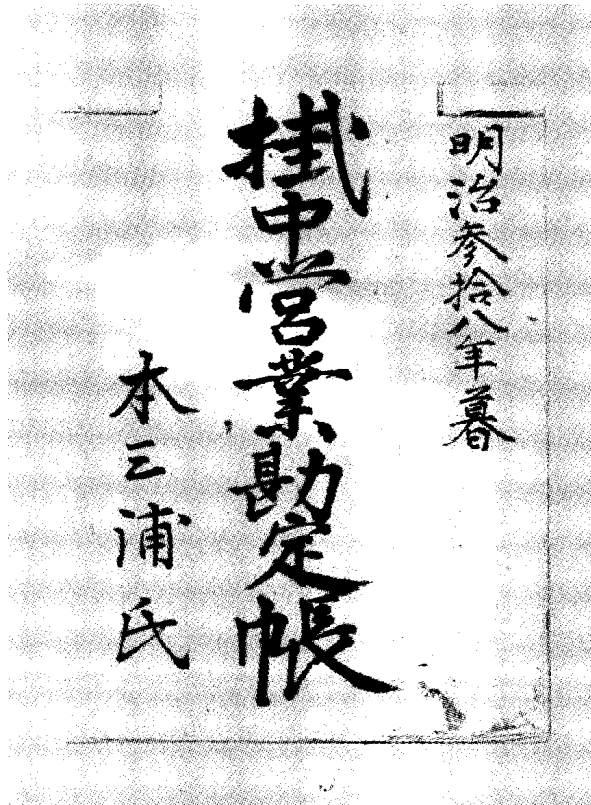 明治参拾八年暮
掛中営業勘定帳
本三浦氏